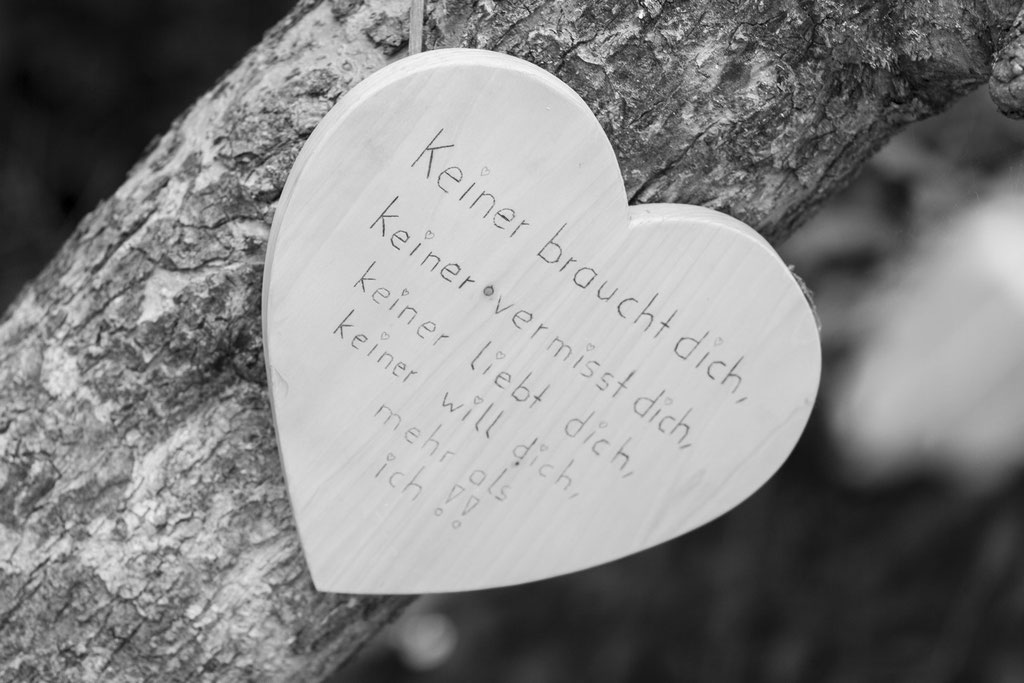 Keiner braucht dich,
keiner vermisst dich,
keiner liebt dich,
keiner will dich,
mehr als
ich !!